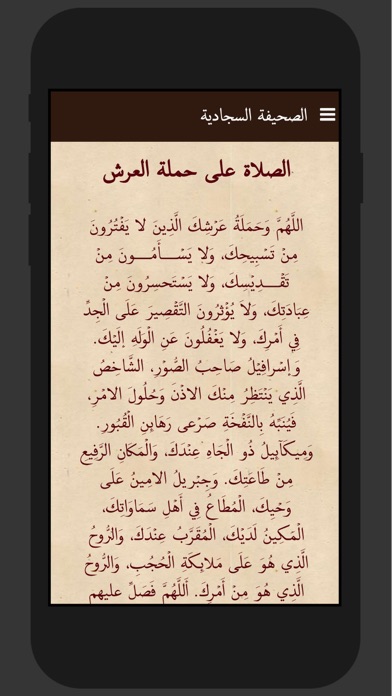 الصحيفة السجادية
الصلاة على حملة العرش
اللَّهُمَّ وَحَمَلَةُ عَرْشِكَ الَّذِينَ لا يَفْتُرُونَ
مِنْ تَسْبِيحِكَ، وَلا يَســأَمُــونَ مِنْ
تَقْــدِيْسِكَ، وَلا يَسْتَحسِرُونَ مِنْ
عِبَادَتِكَ، وَلاَ يُؤْثِرُونَ التَّقْصِيرَ عَلَى الْجِدِّ
فِي أَمْرِكَ، وَلا يَغْفُلُونَ عَنِ الْوَلَهِ إلَيْكَ.
وَإسْرافِيْلُ صَاحِبُ الصُّوْرِ، الشَّاخِصُ
الَّذِي يَنْتَظِرُ مِنْكَ الاذْنَ وَحُلُولَ الامْرِ،
فَيُنَبِّهُ بِالنَّفْخَةِ صَرْعى رَهَائِنِ الْقُبُورِ.
وَمِيكَآئِيلُ ذُو الْجَاهِ عِنْدَكَ، وَالْمَكَانِ الرَّفِيعِ
مِنْ طَاعَتِكَ. وَجِبْريلُ الامِينُ عَلَى
وَحْيِكَ، الْمُطَاعُ فِي أَهْلِ سَمَاوَاتِكَ،
الْمَكِينُ لَدَيْكَ، الْمُقَرَّبُ عِنْدَكَ، وَالرُّوحُ
الَّذِي هُوَ عَلَى مَلائِكَةِ الْحُجُبِ، وَالرُّوحُ
الَّذِي هُوَ مِنْ أَمْرِكَ. أَللَّهُمَّ فَصَلِّ عليهم